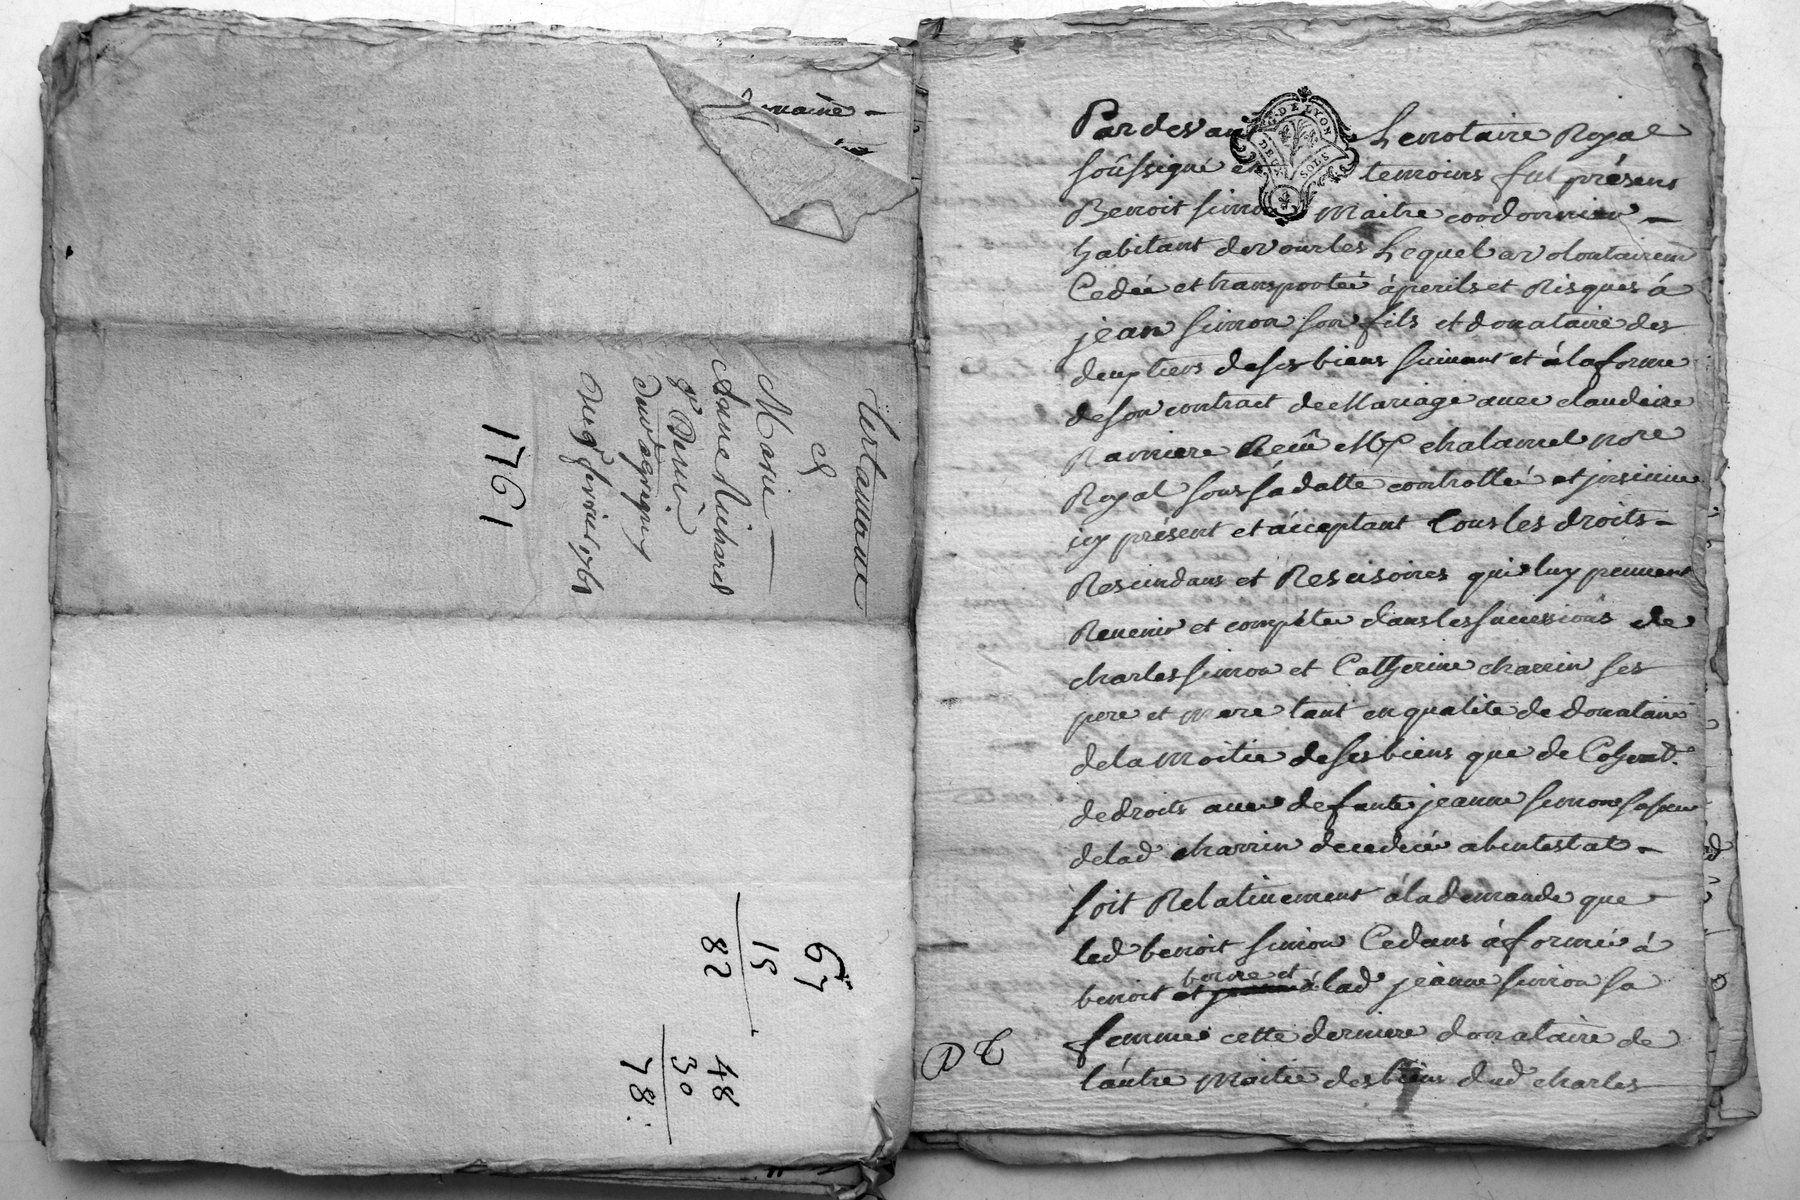 Marie
Anne Richard
1761
67
15
82
48
30
78.
Pardevant Le notaire Royal
G. DE LYON
DEUX SOLS
soussigné et temoins fut présent
Benoit Simon Maitre cordonnier
habitant de vourles Lequel a volontairem
Cedée et transportée à perils et Risques á
jean Simon son fils et donataire des
deux tiers de ses biens suivant et á la forme
de son contract de Mariage avec claudine
Reçu Me chalamel nore
Royal sous sa datte controllé et insinué
icy présent et acceptant tous les droits
Rescindans et Rescisoires qui luy peuvent
Revenir et compéter dans les successions de
charles Simon et Catherine charrin ses
pere et mere tant en qualité de donataire
de la Moitie de ses biens que de Coherit.
de droits avec defunte jeanne Simon sa sœur
de lad charrin decedée abintestat
soit Relativement á la demande que
led benoit Simon Cedant á formé à
benoit et á lad jeanne Simon sa
femme cette derniere donataire de
l'autre Moitie des biens dud charles